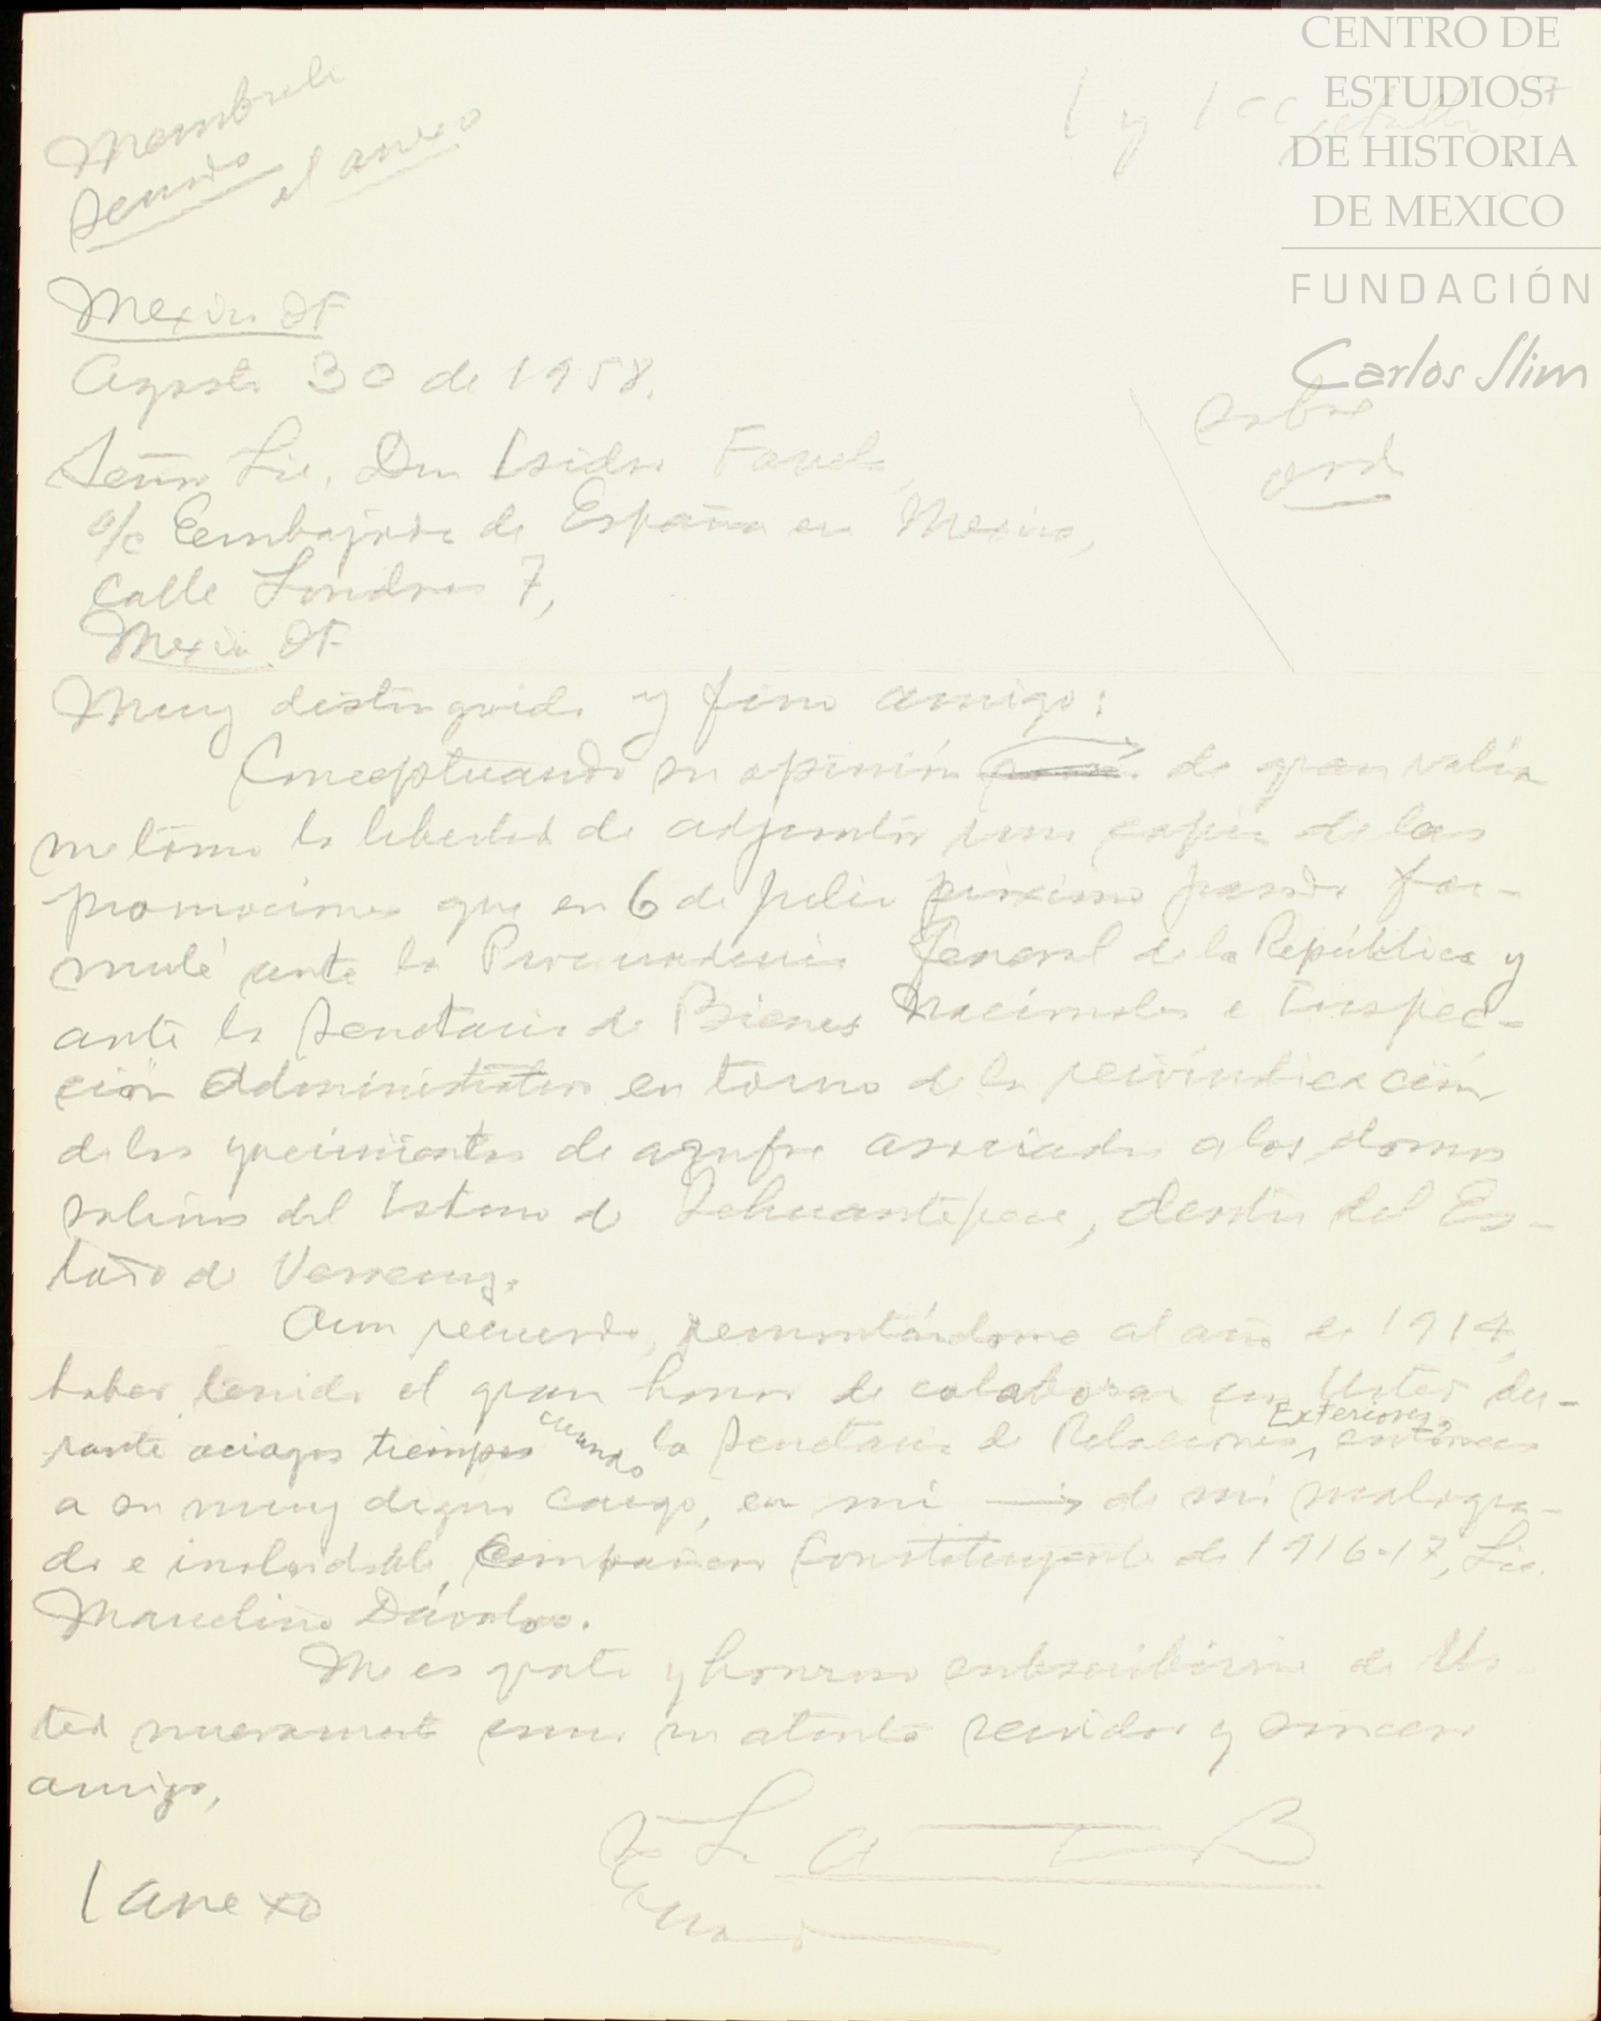 Membrete
Senado
el anexo
1 y 1 cc
CENTRO DE
ESTUDIOS
DE HISTORIA
DE MEXICO
FUNDACIÓN
Carlos Slim
Sobre
ord
Mexico DF
Agosto 30 de 1958.
Señor Lic. Don Isidro Fabela,
a/c Embajada de España en Mexico,
Calle Londres 7,
Mexico DF
Muy distinguido y fino amigo:
Conceptuando su opinión de gran valía
me tomo la libertad de adjuntar una copia de las
promociones que en 6 de julio próximo pasado for-
mulé ante la Procuraduria General de la República y
ante la Secretaria de Bienes Nacionales e Inspec-
ción Administrativa en torno de la reivindicación
de los yacimientos de azufre asociados a los domos
salinos del Istmo de Tehuantepec, dentro del Es-
tado de Veracruz.
Aun recuerdo, remontándome al año de 1914,
haber tenido el gran honor de colaborar con Usted du-
rante aciagos tiempos cuando la Secretaria de Relaciones Exteriores, entonces
a su muy digno cargo, en mi de mi malogra-
do e inolvidable Compañero Constituyente de 1916-17, Lic.
Marcelino Dávalos.
Me es grato y honroso subscribirme de Us-
ted nuevamente como su atento servidor y sincero
amigo,
1 anexo